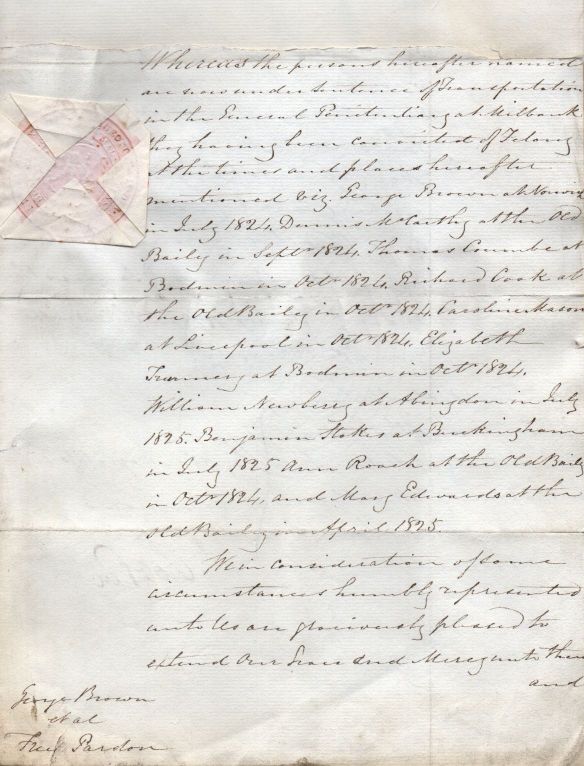 Whereas the persons hereafter named
are now under sentence of Transportation
in the General Penitentiary at Milbank
they having been convicted of Felony
at the times and places hereafter
mentioned viz. George Brown at
in July 1824, Dennis McCarthy at the Old
Baily in Septr 1824, Thomas Coumbe at
Bodmin in Octr 1824, Richard Cook at
the Old Bailey in Octr 1824, Caroline Mason
at Liverpool in Octr 1824, Elizabeth
at Bodmin in Octr 1824,
William Newberry at Abingdon in July
1825. Benjamin Stokes at Buckingham
in July 1825 Ann Roach at the Old Baily
in Octr 1824, and Mary Edwards at the
Old Bailey in April 1825.
We in consideration of some
circumstances humbly represented
unto Us are graciously pleased to
extend Our Grace and Mercy unto them
and
George Brown
et al
Free Pardon